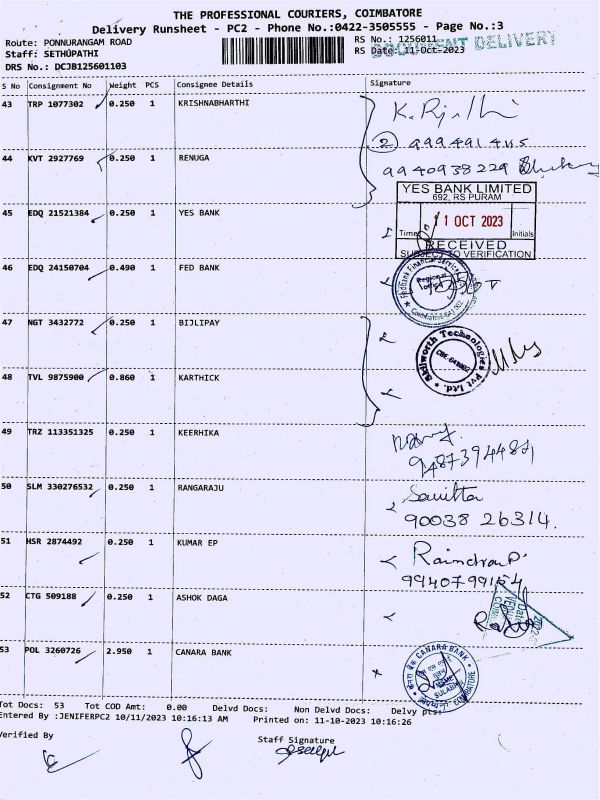 THE PROFESSIONAL COURIERS, COIMBATORE
Delivery Runsheet - PC2 - Phone No.:0422-3505555 - Page No.:3
Route: PONNURANGAM ROAD
RS No.: 1256011
DOCUMENT DELIVERY
Staff: SETHUPATHI
RS Date: 11-Oct-2023
DRS No.: DCJB125601103
S No Consignment No Weight PCS Consignee Details Signature
43 TRP 1077302 0.250 1 KRISHNABHARTHI
44 KVT 2927769 0.250 1 RENUGA
9940938229
YES BANK LIMITED
692, RS PURAM
45 EDQ 21521384 0.250 1 YES BANK
11 OCT 2023
Time Initials
RECEIVED
SUBJECT TO VERIFICATION
46 EDQ 24150704 0.490 1 FED BANK
Regional
47 NGT 3432772 0.250 1 BIJLIPAY
Skilworth Technologies Pvt Ltd.
CBE-641002
48 TVL 9875900 0.860 1 KARTHICK
49 TRZ 113351325 0.250 1 KEERHIKA
9487394484
50 SLM 330276532 0.250 1 RANGARAJU
90038 26314.
51 HSR 2874492 0.250 1 KUMAR EP
9940799154
52 CTG 509188 0.250 1 ASHOK DAGA
53 POL 3260726 2.950 1 CANARA BANK
CANARA BANK
COIMBATORE
Tot Docs: 53 Tot COD Amt: 0.00 Delvd Docs: Non Delvd Docs: Delvy pts:
Entered By :JENIFERPC2 10/11/2023 10:16:13 AM Printed on: 11-10-2023 10:16:26
Verified By
Staff Signature